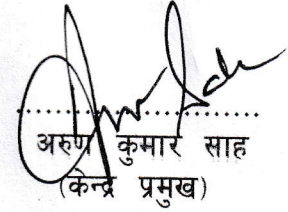 अरुण कुमार साह
(केन्द्र प्रमुख)